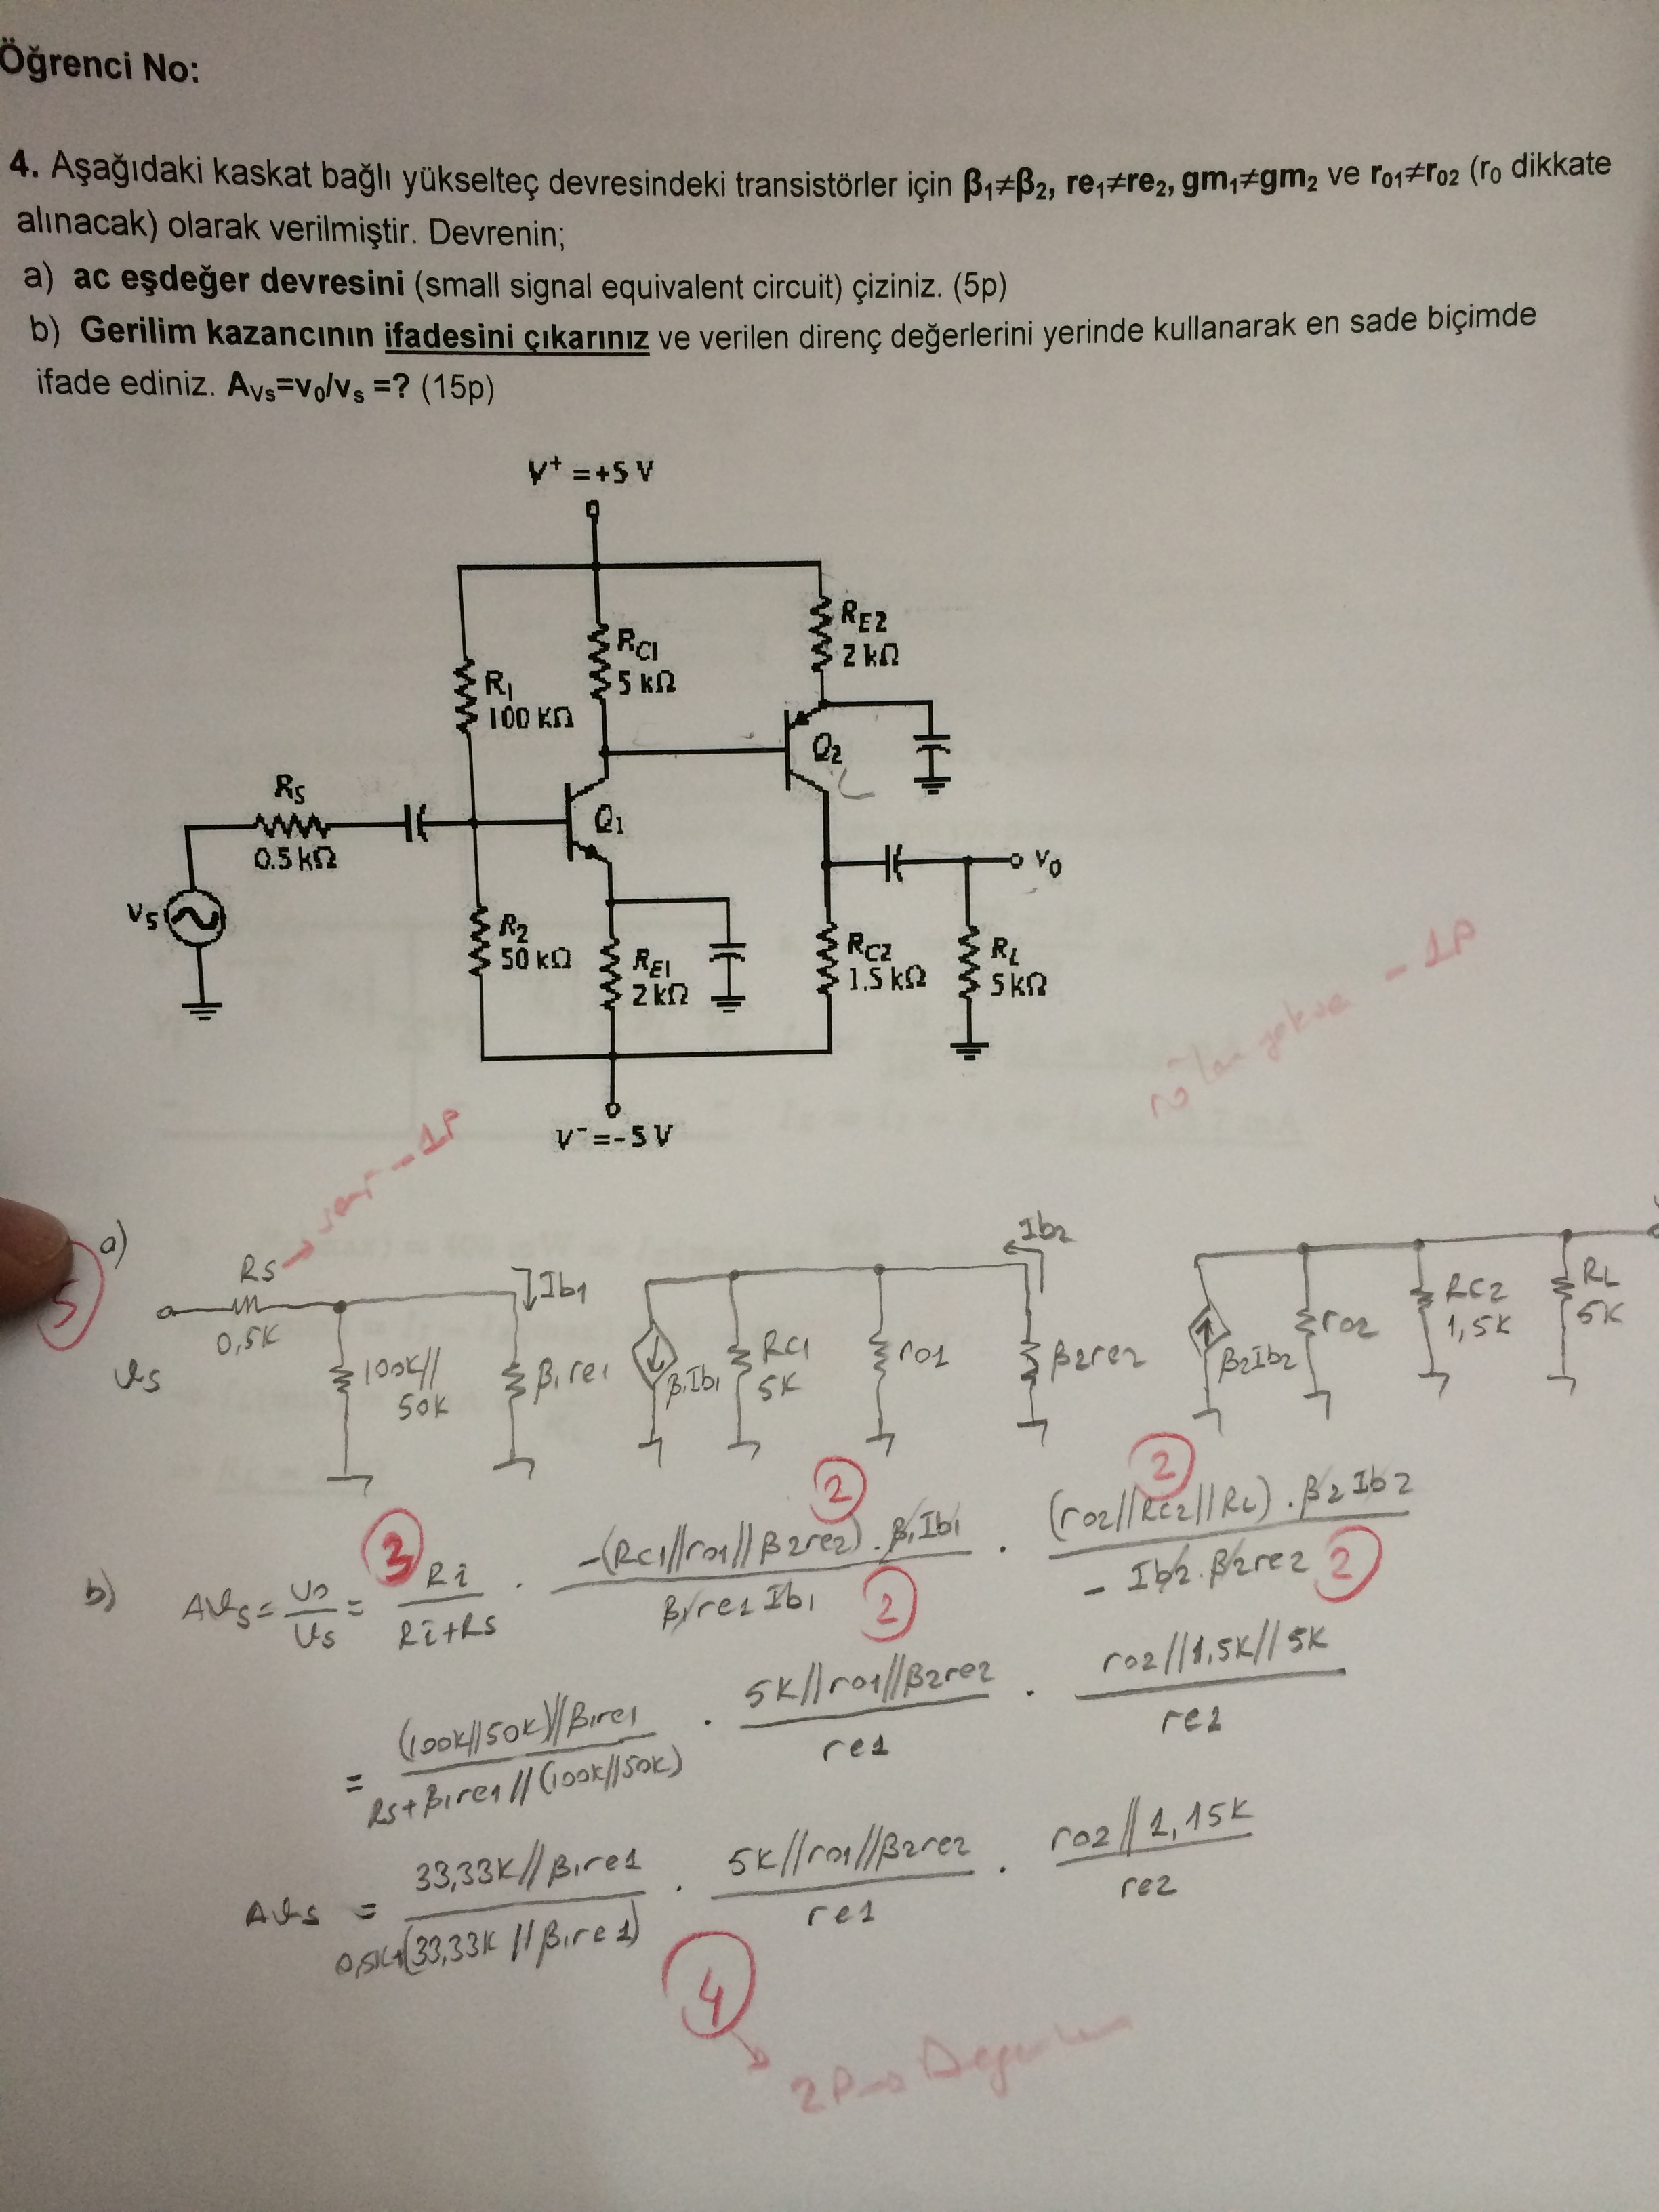 Öğrenci No:
4. Aşağıdaki kaskat bağlı yükselteç devresindeki transistörler için β₁≠β₂, re₁≠re₂, gm₁≠gm₂ ve r₀₁≠r₀₂ (r₀ dikkate
alınacak) olarak verilmiştir. Devrenin;
a) ac eşdeğer devresini (small signal equivalent circuit) çiziniz. (5p)
b) Gerilim kazancının ifadesini çıkarınız ve verilen direnç değerlerini yerinde kullanarak en sade biçimde
ifade ediniz. Aᵥₛ=v₀/vₛ =? (15p)
V⁺ = +5 V
R_E2
2 kΩ
R_C1
5 kΩ
R₁
100 KΩ
Q₂
R_S
0.5 kΩ
Q₁
v_O
v_S
R₂
50 kΩ
R_E1
2 kΩ
R_C2
1.5 kΩ
R_L
5 kΩ
-1P
V⁻ = -5 V
-1P
5
a)
Rs
0,5K
Vs
100K//
50K
Ib1
β1re1
β1Ib1
RC1
5K
ro1
Ib2
β2re2
β2Ib2
ro2
RC2
1,5K
RL
5K
3 2 2
b) AVs = Vo/Vs = Ri/(Ri+Rs) . -(RC1//ro1//β2re2) . β1Ib1 / β1re1 Ib1 . (ro2//RC2//RL) . β2Ib2 / - Ib2 . β2re2
2 2
= (100K//50K)//β1re1 / Rs+β1re1//(100K//50K) . 5K//ro1//β2re2 / re1 . ro2//1,5K//5K / re2
AVs = 33,33K//β1re1 / 0,5K+(33,33K//β1re1) . 5K//ro1//β2re2 / re1 . ro2//1,15K / re2
4
2P→